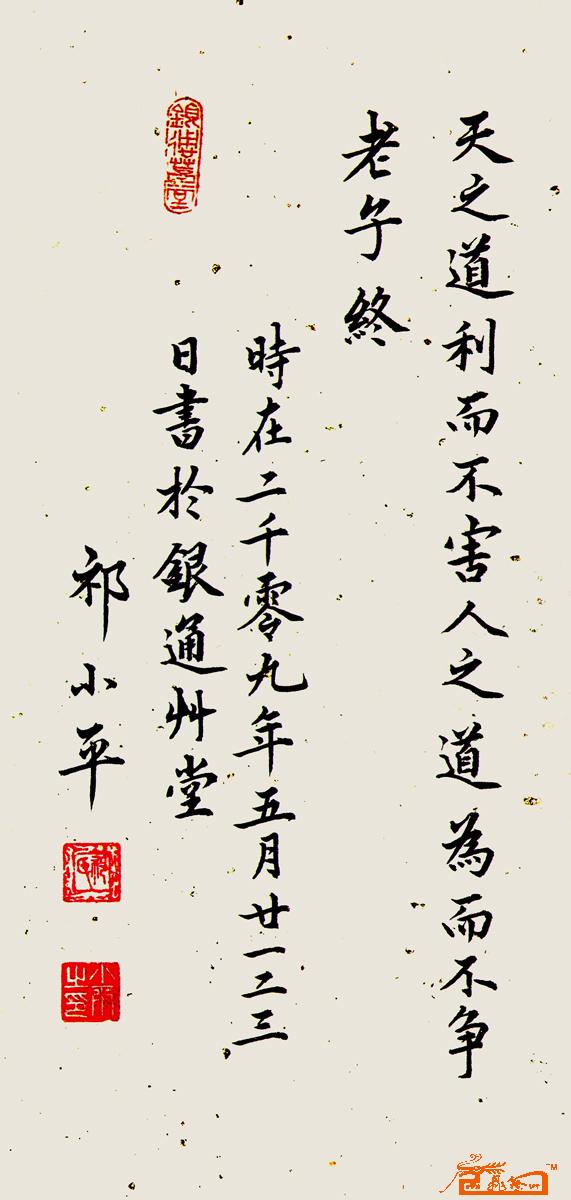 天之道利而不害人之道為而不争
老子終
時在二千零九年五月廿一二三
日書於銀通艸堂
祁小平